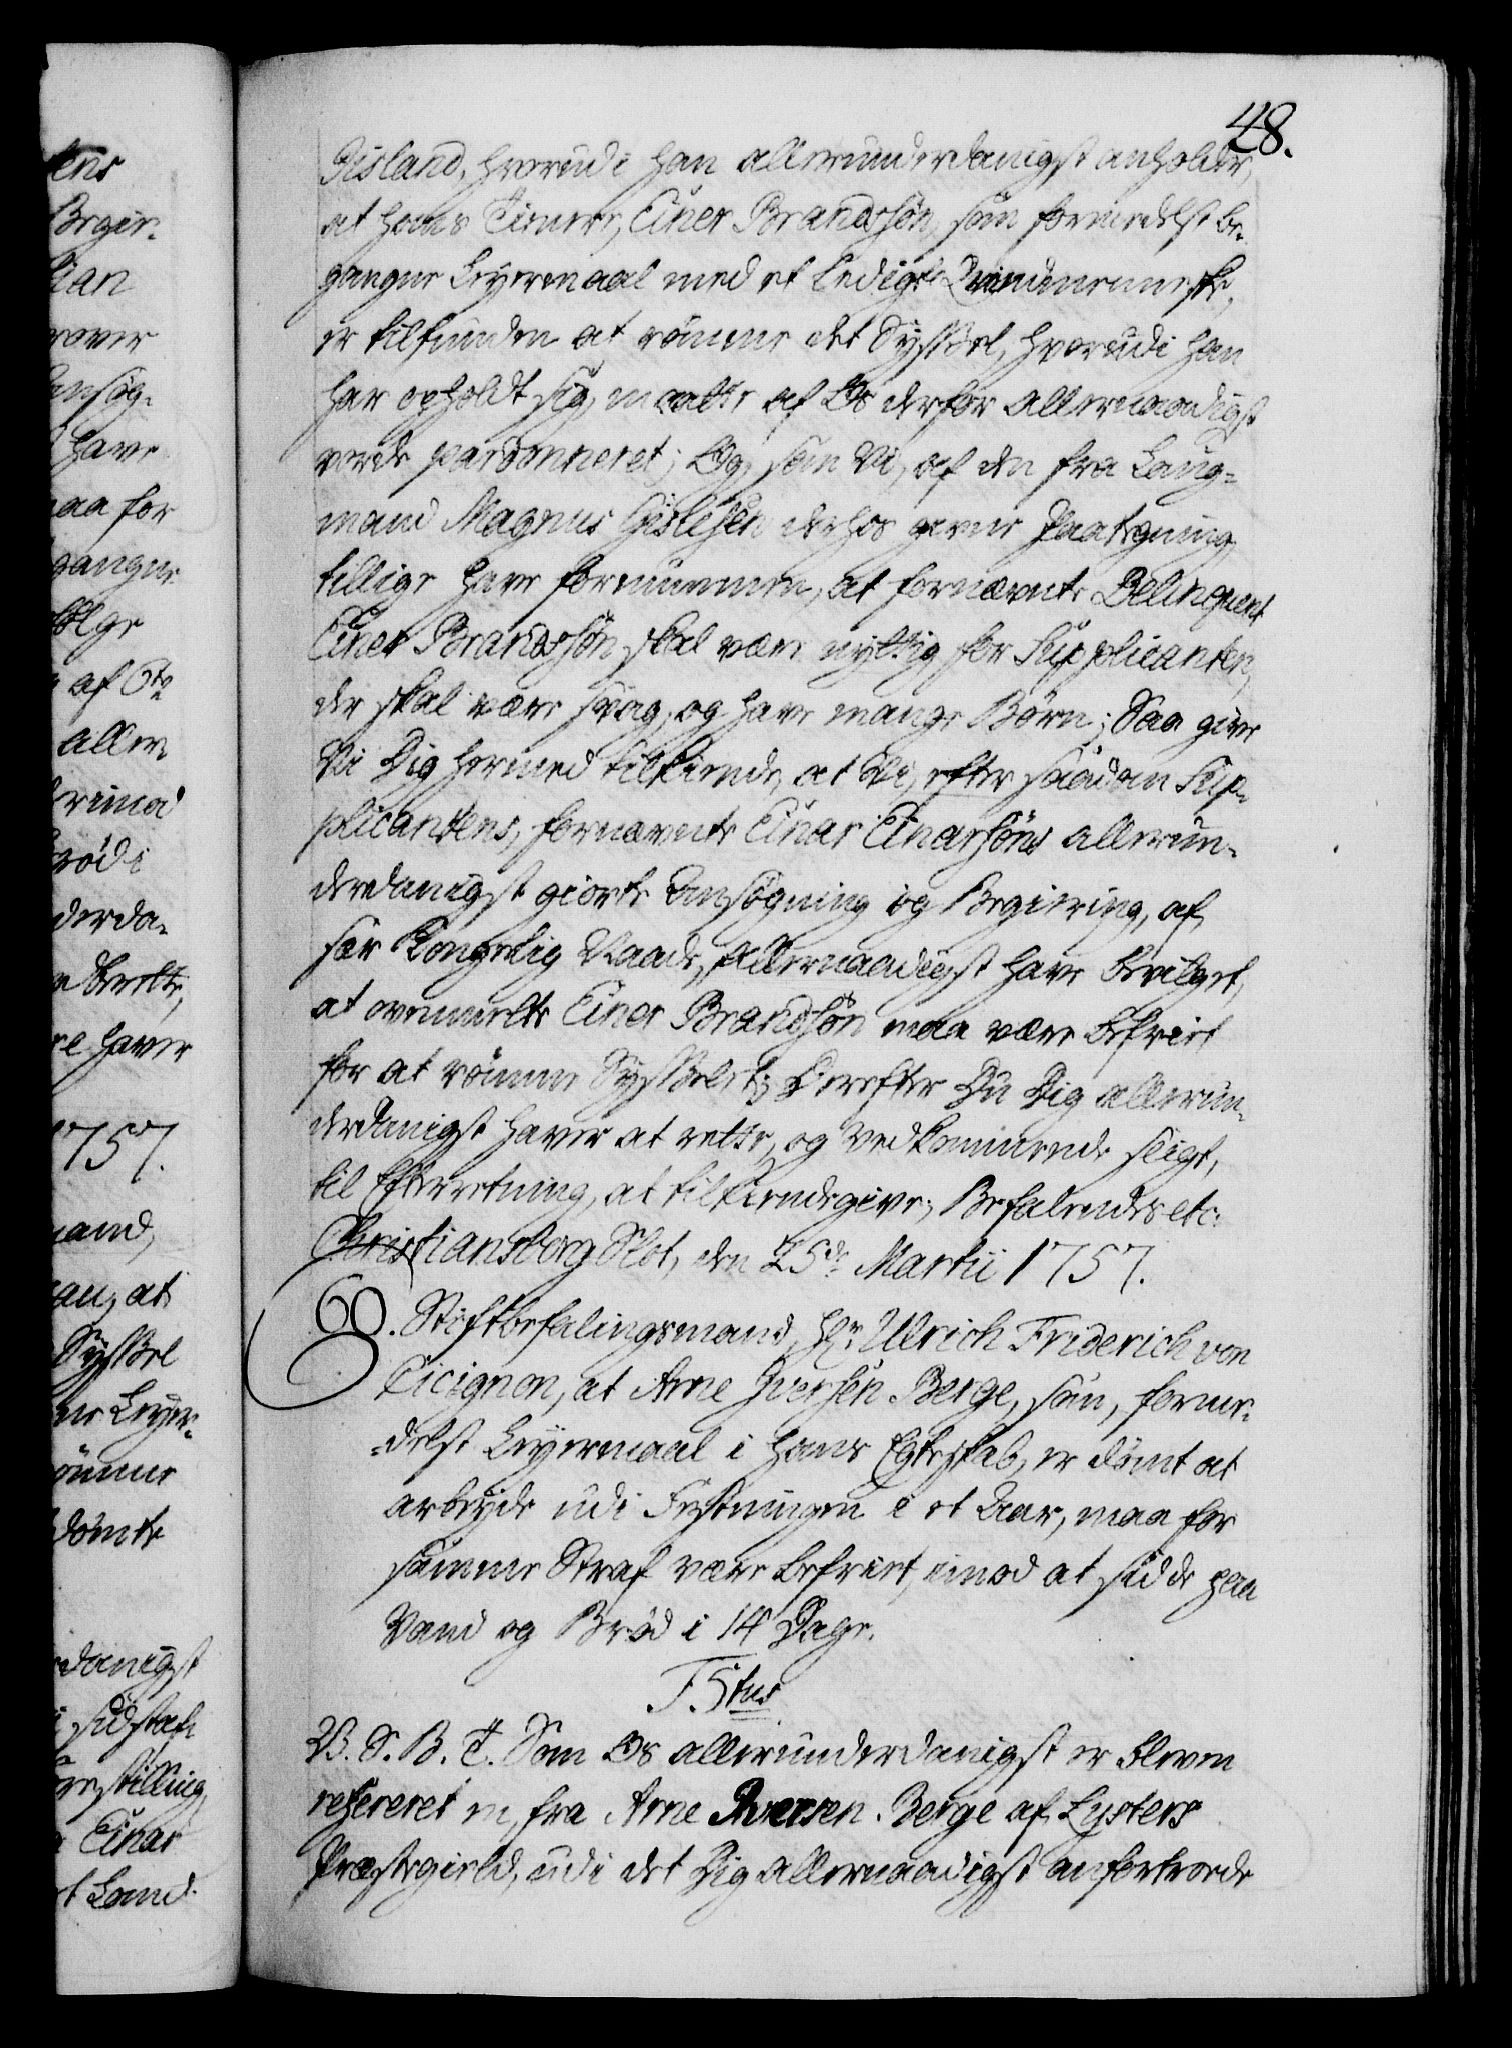 48.
Iisland, hvorudi han allerunderdanigst anholder,
at hans Tiener, Einer Brandssøn, som formedelst be¬
gangne Leyermaal med et ledigt Qvindmenneske,
er tilfunden at rømme det Syssel, hvorudi han
har opholdt sig, maatte af Os derfor allernaadigst
vorde pardonneret; Og, som Vi, af den fra Laug¬
mand Magnus Gislesen derhos givne Paategning
tillige have fornummen, at fornævnte Delinquent
Einer Brandssøn skal være nyttig for Supplicanten,
der skal være svag, og have mange Børn; Saa give
Vi Dig hermed tilkiende, at Vi, efter saadan Sup¬
plicantens, fornævnte Einar Einarsøns allerun¬
derdanigst giorte Ansøgning og Begiering, af
sær Kongelig Naade, allernaadigst have bevilget,
at ovenmelte Einer Brandssøn maa være befriet
for at rømme Sysselet; Derefter Du Dig allerun¬
derdanigst haver at rette, og Vedkommende sligt,
til Efterretning, at tilkiendegive; Befalendes etc:
Christiansborg Slot, den 25de Martii 1757.
60. Stiftbefalingsmand, Hr. Ulrich Friderich von
Cicignon, at Arne Iversen Berge, som, forme¬
delst Leyermaal i hans Egteskab, er dømt at
arbeyde udi Festningen i et Aar, maa for
samme Straf være befriet, imod at sidde paa
Vand og Brød i 14 Dage.
F. 5tus
V. S. B. T. Som Os allerunderdanigst er bleven
refereret en, fra Arne Iversen Berge af Lysters
Præstegield, udi det Dig allernaadigst anfortroede